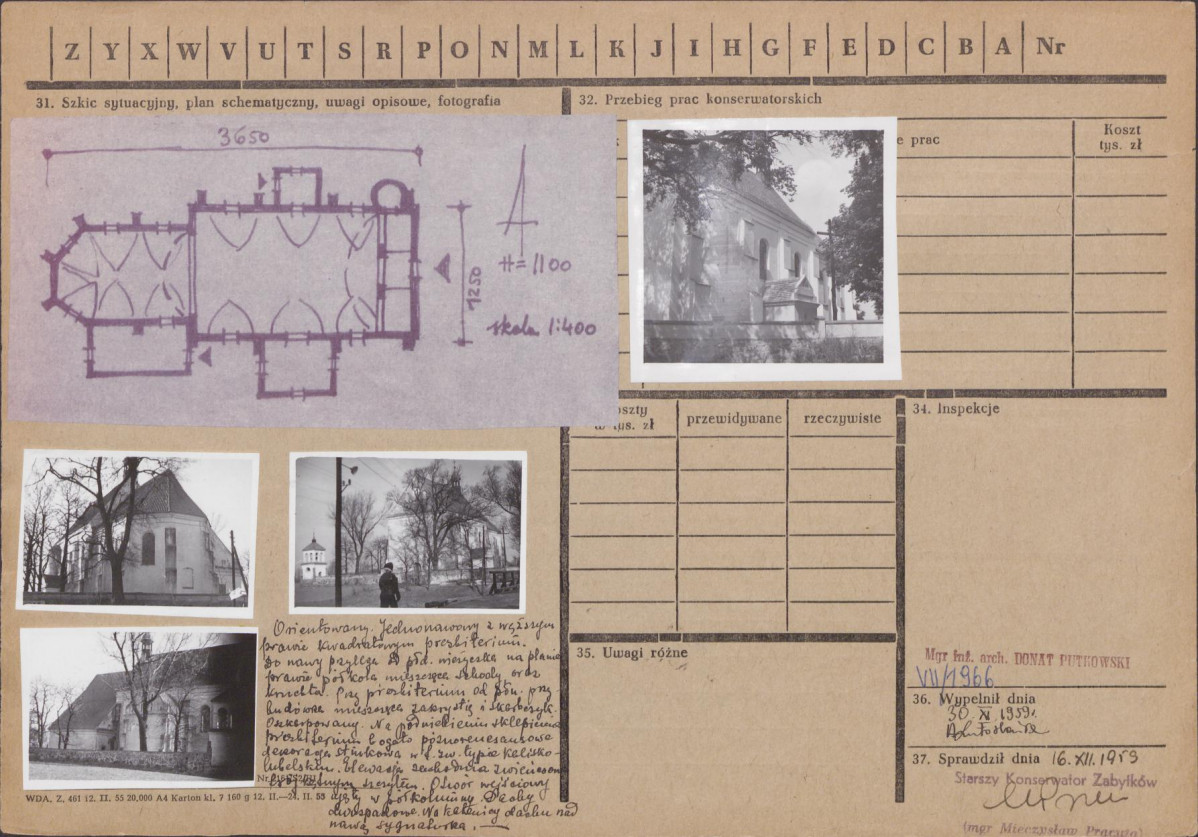 Z Y X W V U T S R P O N M L K J I H G F E D C B A Nr
31. Szkic sytuacyjny, plan schematyczny, uwagi opisowe, fotografia
3650
1250
H=1100
skala 1:400
Orientowany. Jednonawowy z węższym
prawie kwadratowym prezbiterium.
Do nawy przylega od płd. wieżyczka na planie
prawie półkola mieszcząca schody oraz
kruchta. Przy prezbiterium od płn. przy
budówka mieszcząca zakrystię i skarbczyk.
Oszkarpowany. Na podniebieniu sklepienia
prezbiterium bogato późnorenesansowa
dekoracja stiukowa w t.zw. typie kalisko-
lubelskim. Elewacja zachodnia zwieńczona
szczytem. Otwór wejściowy
ujęty w półkolumny. Dachy
dwuspadowe. Na kalenicy dachu nad
nawą sygnaturka.
WDA, Z, 461 12. II. 55 20,000 A4 Karton kl. 7 160 g 12. II.—24. II. 55
32. Przebieg prac konserwatorskich
e prac
Koszt
tys. zł
oszty
w tys. zł
przewidywane
rzeczywiste
34. Inspekcje
35. Uwagi różne
Mgr inż. arch. DONAT PUTKOWSKI
VII/1966
36. Wypełnił dnia
30 XI 1959r.
37. Sprawdził dnia 16. XII. 1959
Starszy Konserwator Zabytków
(mgr Mieczysław